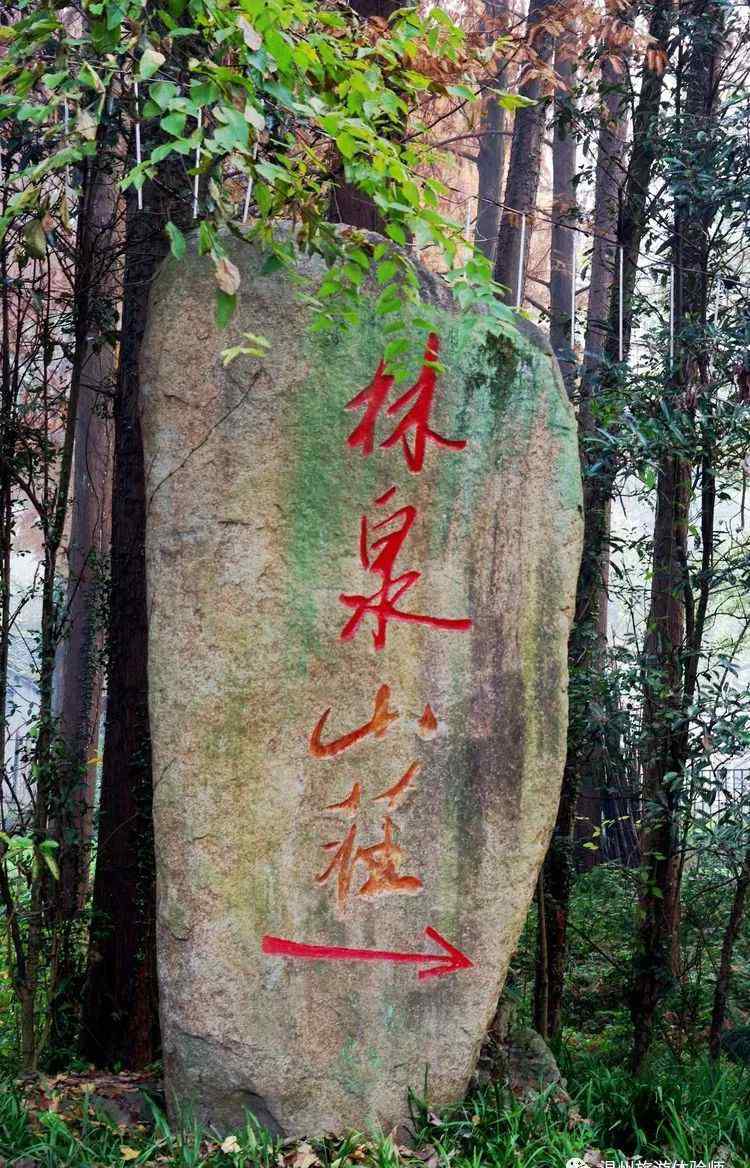 林泉山莊
温州旅游体验师